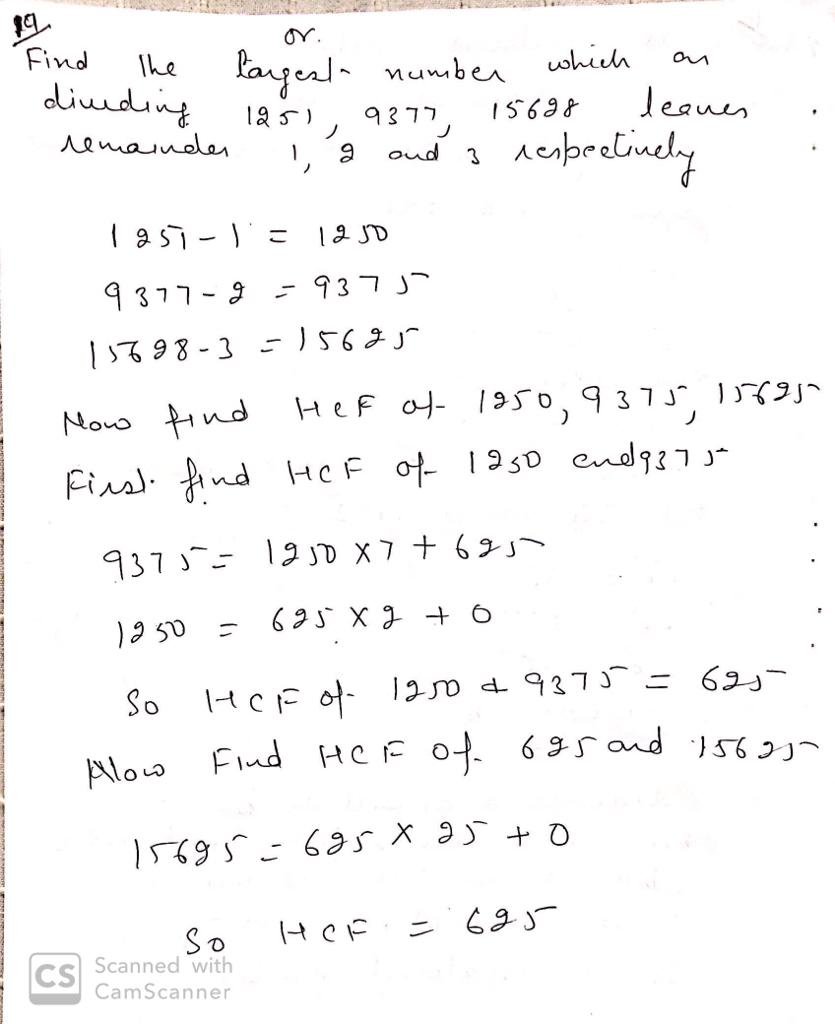 19
or.
Find the largest number which on
dividing 1251, 9377, 15628 leaves
remainder 1, 2 and 3 respectively
1251 - 1 = 1250
9377 - 2 = 9375
15628 - 3 = 15625
Now find HCF of 1250, 9375, 15625
First find HCF of 1250 and 9375
9375 = 1250 x 7 + 625
1250 = 625 x 2 + 0
So HCF of 1250 & 9375 = 625
Now Find HCF of 625 and 15625
15625 = 625 x 25 + 0
So HCF = 625
CS Scanned with
CamScanner